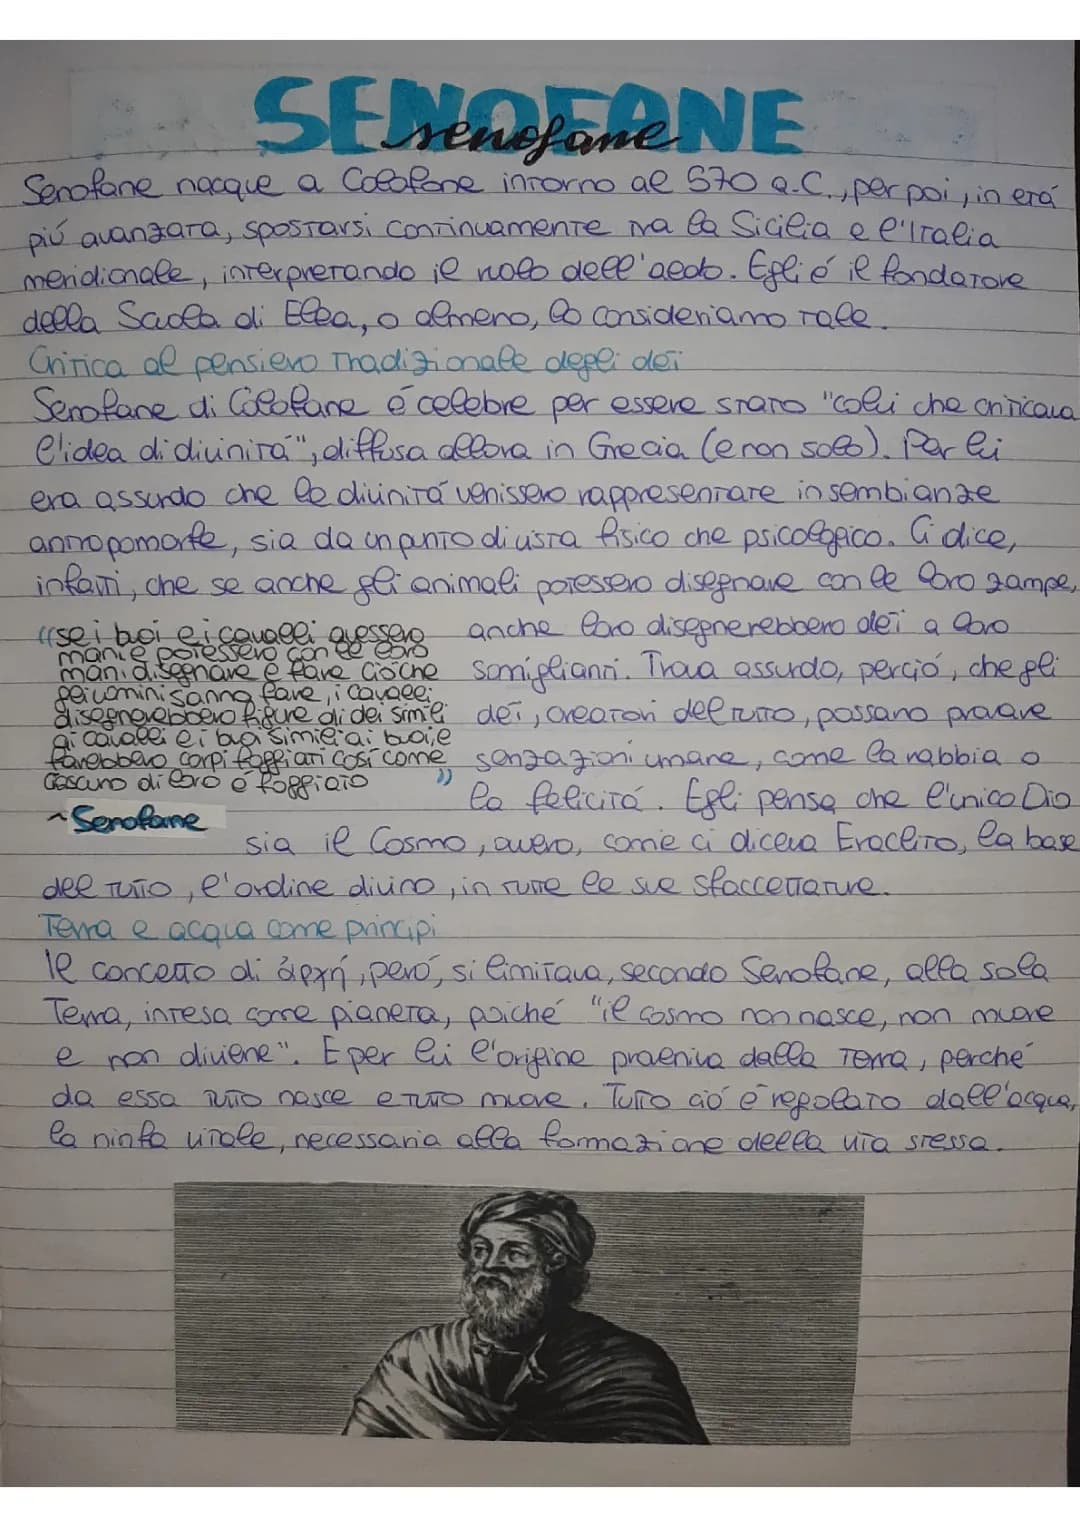 SENOFANE
senofane
Senofane nacque a Colofone intorno al 570 a.C., per poi, in etá
piú avanzata, spostarsi continuamente tra la Sicilia e l'Italia
meridionale, interpretando il ruolo dell'aedo. Egli é il fondatore
della Scuola di Elea, o almeno, lo consideriamo tale.
Critica al pensiero tradizionale degli dei
Senofane di Colofane é celebre per essere stato "colui che criticava
l'idea di divinitá", diffusa allora in Grecia (e non solo). Per lui
era assurdo che le divinitá venissero rappresentate in sembianze
antropomorfe, sia da un punto di vista fisico che psicologico. Ci dice,
infatti, che se anche gli animali potessero disegnare con le loro zampe,
anche loro disegnerebbero dei a loro
somiglianti. Trova assurdo, perció, che gli
dei, creatori del tutto, possano provare
senzazioni umane, come la rabbia o
la felicitá. Egli pensa che l'unico Dio
sia il Cosmo, ovvero, come ci diceva Eraclito, la base
del tutto, l'ordine divino, in tutte le sue sfaccettature.
((se i buoi e i cavalli avessero
mani e potessero con le loro
mani disegnare e fare ció che
gli uomini sanno fare, i cavalli
disegnerebbero figure di dei simili
ai cavalli e i buoi simili ai buoi, e
farebbero corpi foggiati cosí come
ciascuno di loro é foggiato ))
~ Senofane
Terra e acqua come principi
Il concetto di ἀρχή, peró, si limitava, secondo Senofane, alla sola
Terra, intesa come pianeta, poiché "il cosmo non nasce, non muore
e non diviene". E per lui l'origine proveniva dalla Terra, perché
da essa tutto nasce e tutto muore. Tutto ció é regolato dall'acqua,
la ninfa vitale, necessaria alla formazione della vita stessa.